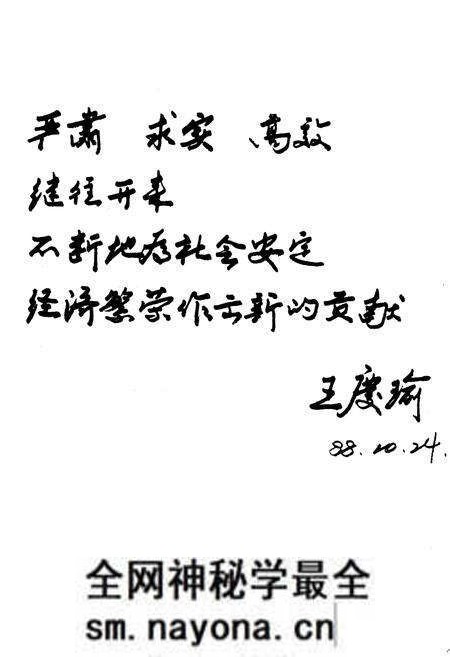 严肃 求实 高效
继往开来
不断地为社会安定
经济繁荣作出新的贡献
王庆瑜
88.10.24.
全网神秘学最全
sm.nayona.cn